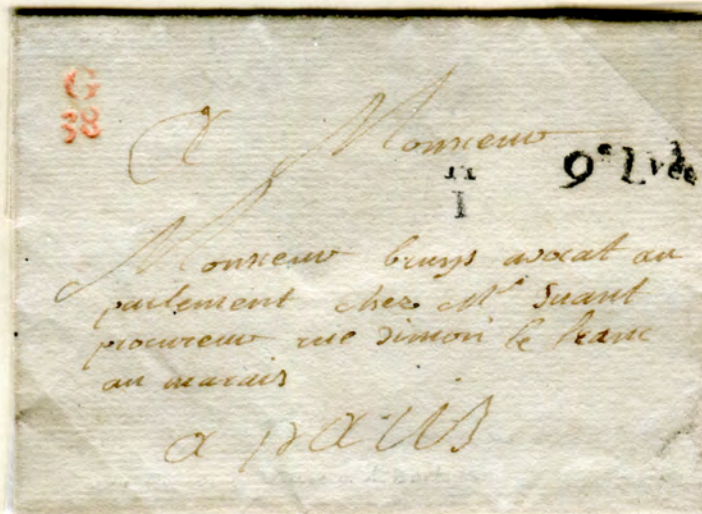 G
38
A Monsieur
I
9e Lvée
Monsieur bruys avocat au
parlement chez Mr Suant
procureur rue Simon le franc
au marais
a paris